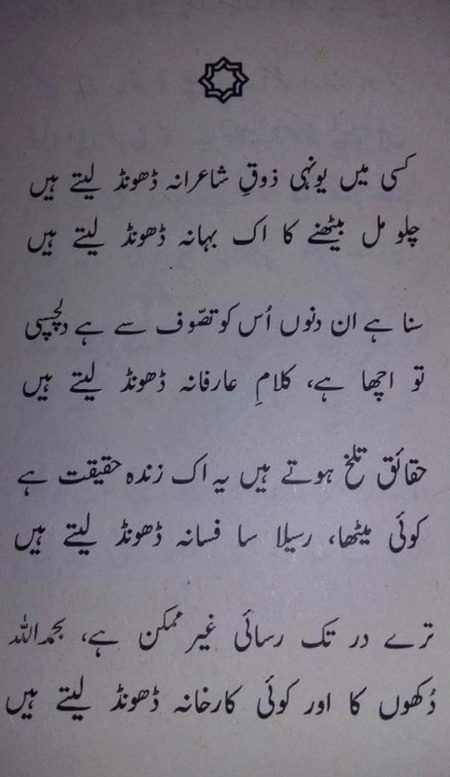 کسی میں یونہی ذوقِ شاعرانہ ڈھونڈ لیتے ہیں
چلو مل بیٹھنے کا اک بہانہ ڈھونڈ لیتے ہیں
سنا ہے ان دنوں اُس کو تصّوف سے ہے دلچسپی
تو اچھا ہے، کلامِ عارفانہ ڈھونڈ لیتے ہیں
حقائق تلخ ہوتے ہیں یہ اک زندہ حقیقت ہے
کوئی میٹھا، رسیلا سا فسانہ ڈھونڈ لیتے ہیں
ترے در تک رسائی غیر ممکن ہے، بحمداللہ
دُکھوں کا اور کوئی کارخانہ ڈھونڈ لیتے ہیں